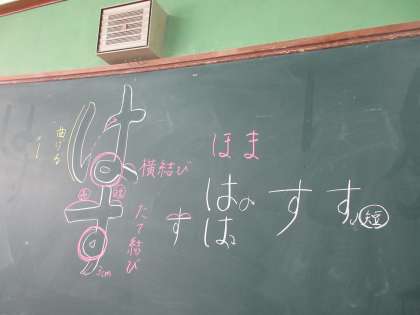 曲げる
はす
横結び
たて結び
2cm
ほま
す
は
は
す
す
短